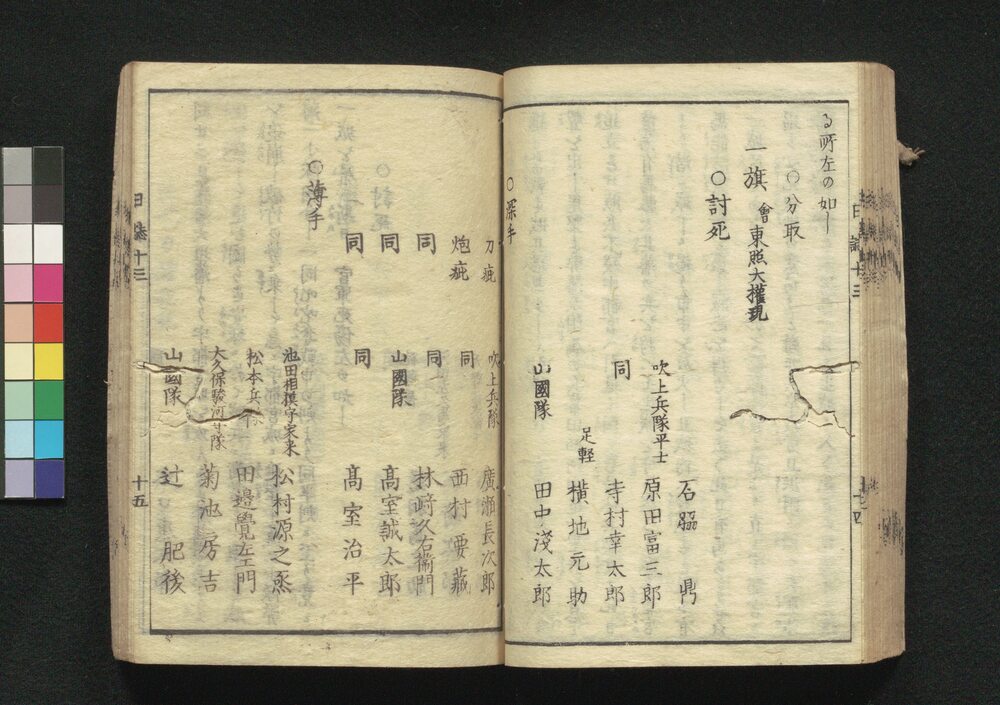 る所左の如し
○分取
一旗 會東照大權現
○討死
石𦚰 鼎
吹上兵隊平士 原田富三郎
同 寺村幸太郎
足軽 横地元助
山國隊 田中淺太郎
○深手
刀疵 吹上兵隊 廣瀬長次郎
炮疵 同 西村要藏
同 同 林﨑久右衞門
同 山國隊 髙室誠太郎
同 同 髙室治平
○薄手
池田相摸守家来 松村源之烝
松本兵隊 田邉覺左エ門
大久保駿河守隊 菊池房吉
山國隊 辻肥後
日誌十三
十四
日誌十三
十五